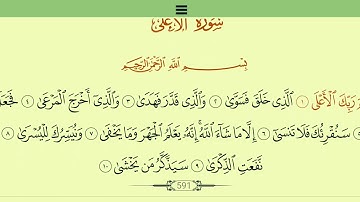 سورة الأعلى
بِسْمِ اللَّهِ الرَّحْمَٰنِ الرَّحِيمِ
رَبِّكَ الْأَعْلَى ١ الَّذِي خَلَقَ فَسَوَّىٰ ٢ وَالَّذِي قَدَّرَ فَهَدَىٰ ٣ وَالَّذِي أَخْرَجَ الْمَرْعَىٰ ٤ فَجَعَلَ
سَنُقْرِئُكَ فَلَا تَنسَىٰ ٦ إِلَّا مَا شَاءَ اللَّهُ إِنَّهُ يَعْلَمُ الْجَهْرَ وَمَا يَخْفَىٰ ٧ وَنُيَسِّرُكَ لِلْيُسْرَىٰ ٨
نَّفَعَتِ الذِّكْرَىٰ ٩ سَيَذَّكَّرُ مَن يَخْشَىٰ ١٠
591